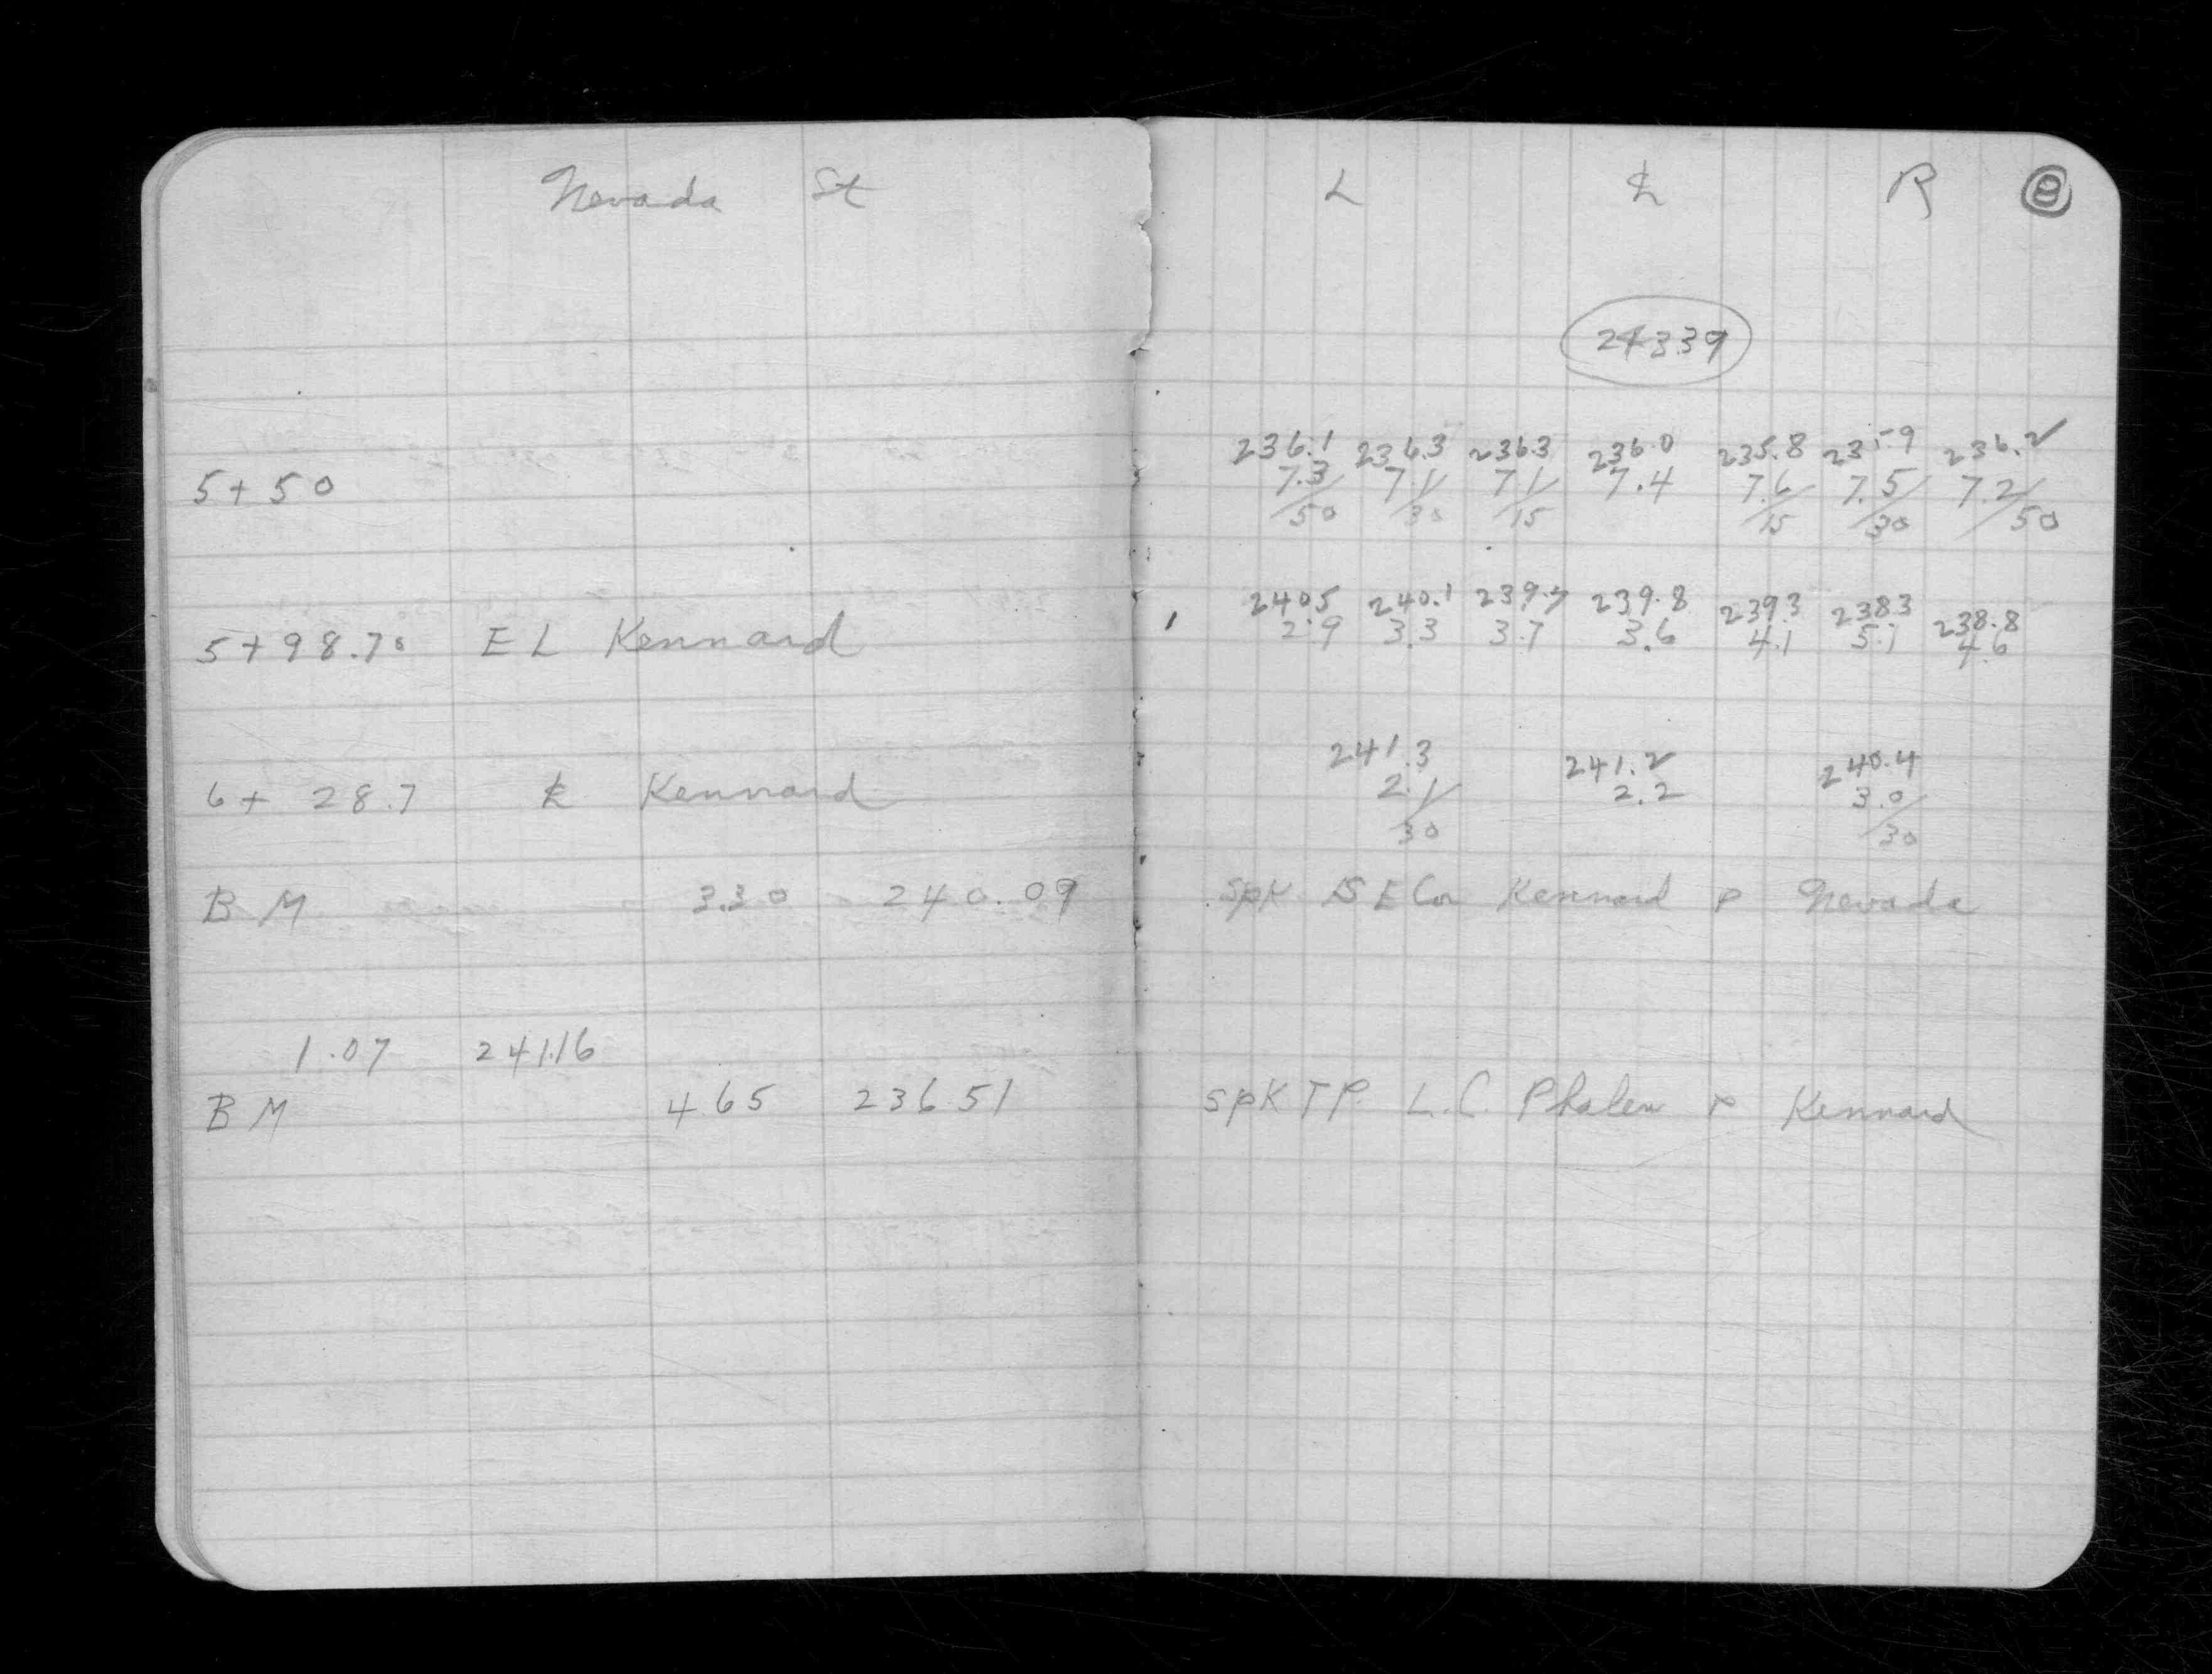 Nevada St L ℄ R 8
243.39
236.1 236.3 236.3 236.0 235.8 235.9 236.2
5+50 7.3 7.1 7.1 7.4 7.6 7.5 7.2
50 30 15 15 30 50
240.5 240.1 239.7 239.8 239.3 238.3 238.8
5+98.70 E L Kennard 2.9 3.3 3.7 3.6 4.1 5.1 4.6
241.3 241.2 240.4
6+28.7 ℄ Kennard 2.1 2.2 3.0
30 30
B M 3.30 240.09 Spk SE Cor Kennard & Nevada
1.07 241.16
B M 4.65 236.51 Spk TP. L.C. Phalen & Kennard